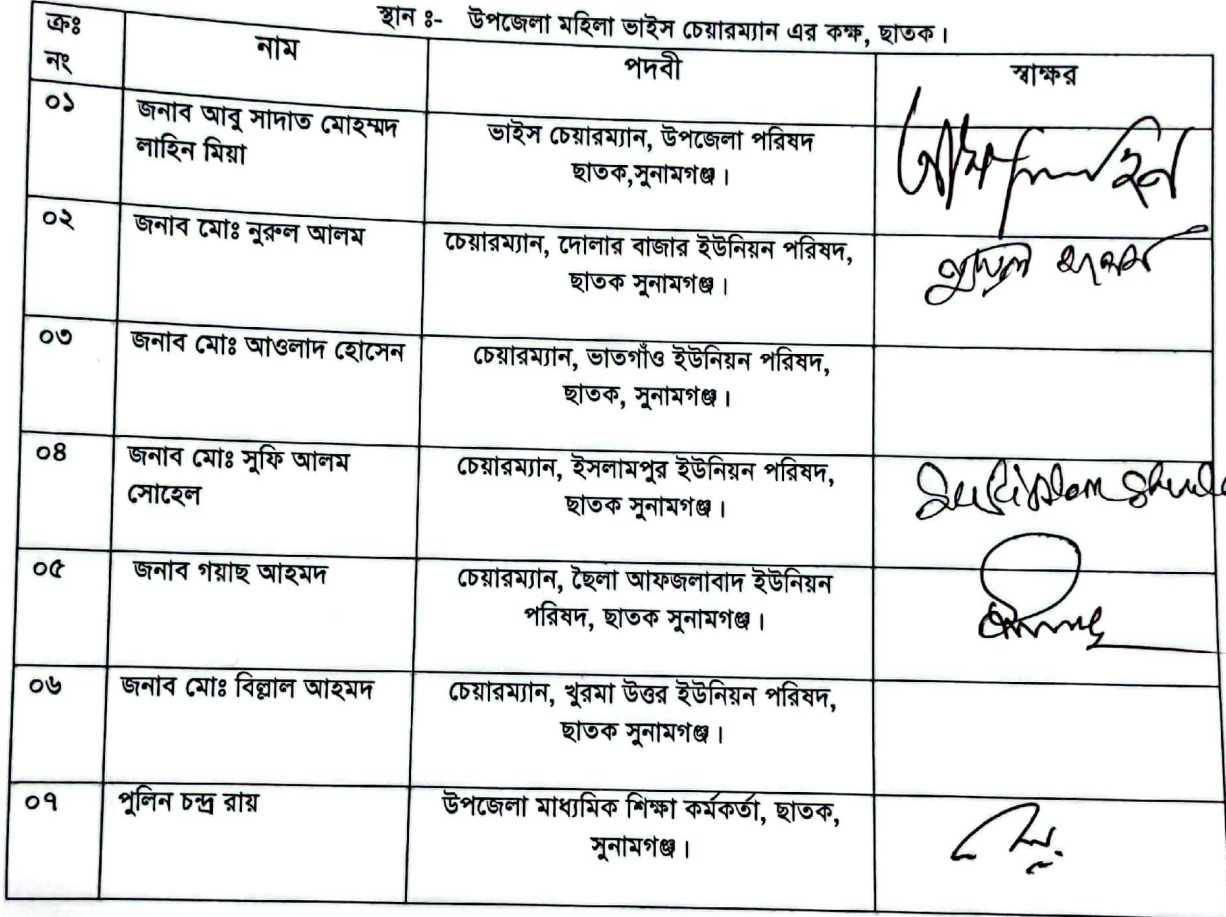 স্থান ঃ- উপজেলা মহিলা ভাইস চেয়ারম্যান এর কক্ষ, ছাতক।
ক্রঃ নং নাম পদবী স্বাক্ষর
০১ জনাব আবু সাদাত মোহম্মদ ভাইস চেয়ারম্যান, উপজেলা পরিষদ
লাহিন মিয়া ছাতক,সুনামগঞ্জ।
০২ জনাব মোঃ নুরুল আলম চেয়ারম্যান, দোলার বাজার ইউনিয়ন পরিষদ,
ছাতক সুনামগঞ্জ।
০৩ জনাব মোঃ আওলাদ হোসেন চেয়ারম্যান, ভাতগাঁও ইউনিয়ন পরিষদ,
ছাতক, সুনামগঞ্জ।
০৪ জনাব মোঃ সুফি আলম চেয়ারম্যান, ইসলামপুর ইউনিয়ন পরিষদ,
সোহেল ছাতক সুনামগঞ্জ।
০৫ জনাব গয়াছ আহমদ চেয়ারম্যান, ছৈলা আফজলাবাদ ইউনিয়ন
পরিষদ, ছাতক সুনামগঞ্জ।
০৬ জনাব মোঃ বিল্লাল আহমদ চেয়ারম্যান, খুরমা উত্তর ইউনিয়ন পরিষদ,
ছাতক সুনামগঞ্জ।
০৭ পুলিন চন্দ্র রায় উপজেলা মাধ্যমিক শিক্ষা কর্মকর্তা, ছাতক,
সুনামগঞ্জ।